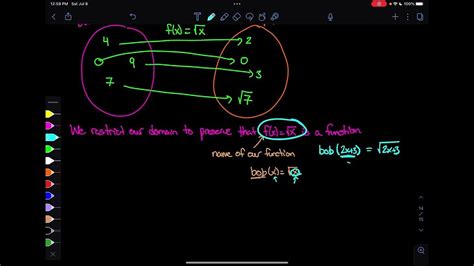 12:59 PM Sat Jul 8
f(x)=√x
4 2
0 9 0
3
7 √7
We restrict our domain to preserve that f(x)=√x is a function
name of our function bob(2x+3) = √2x+3
bob(x)=√x